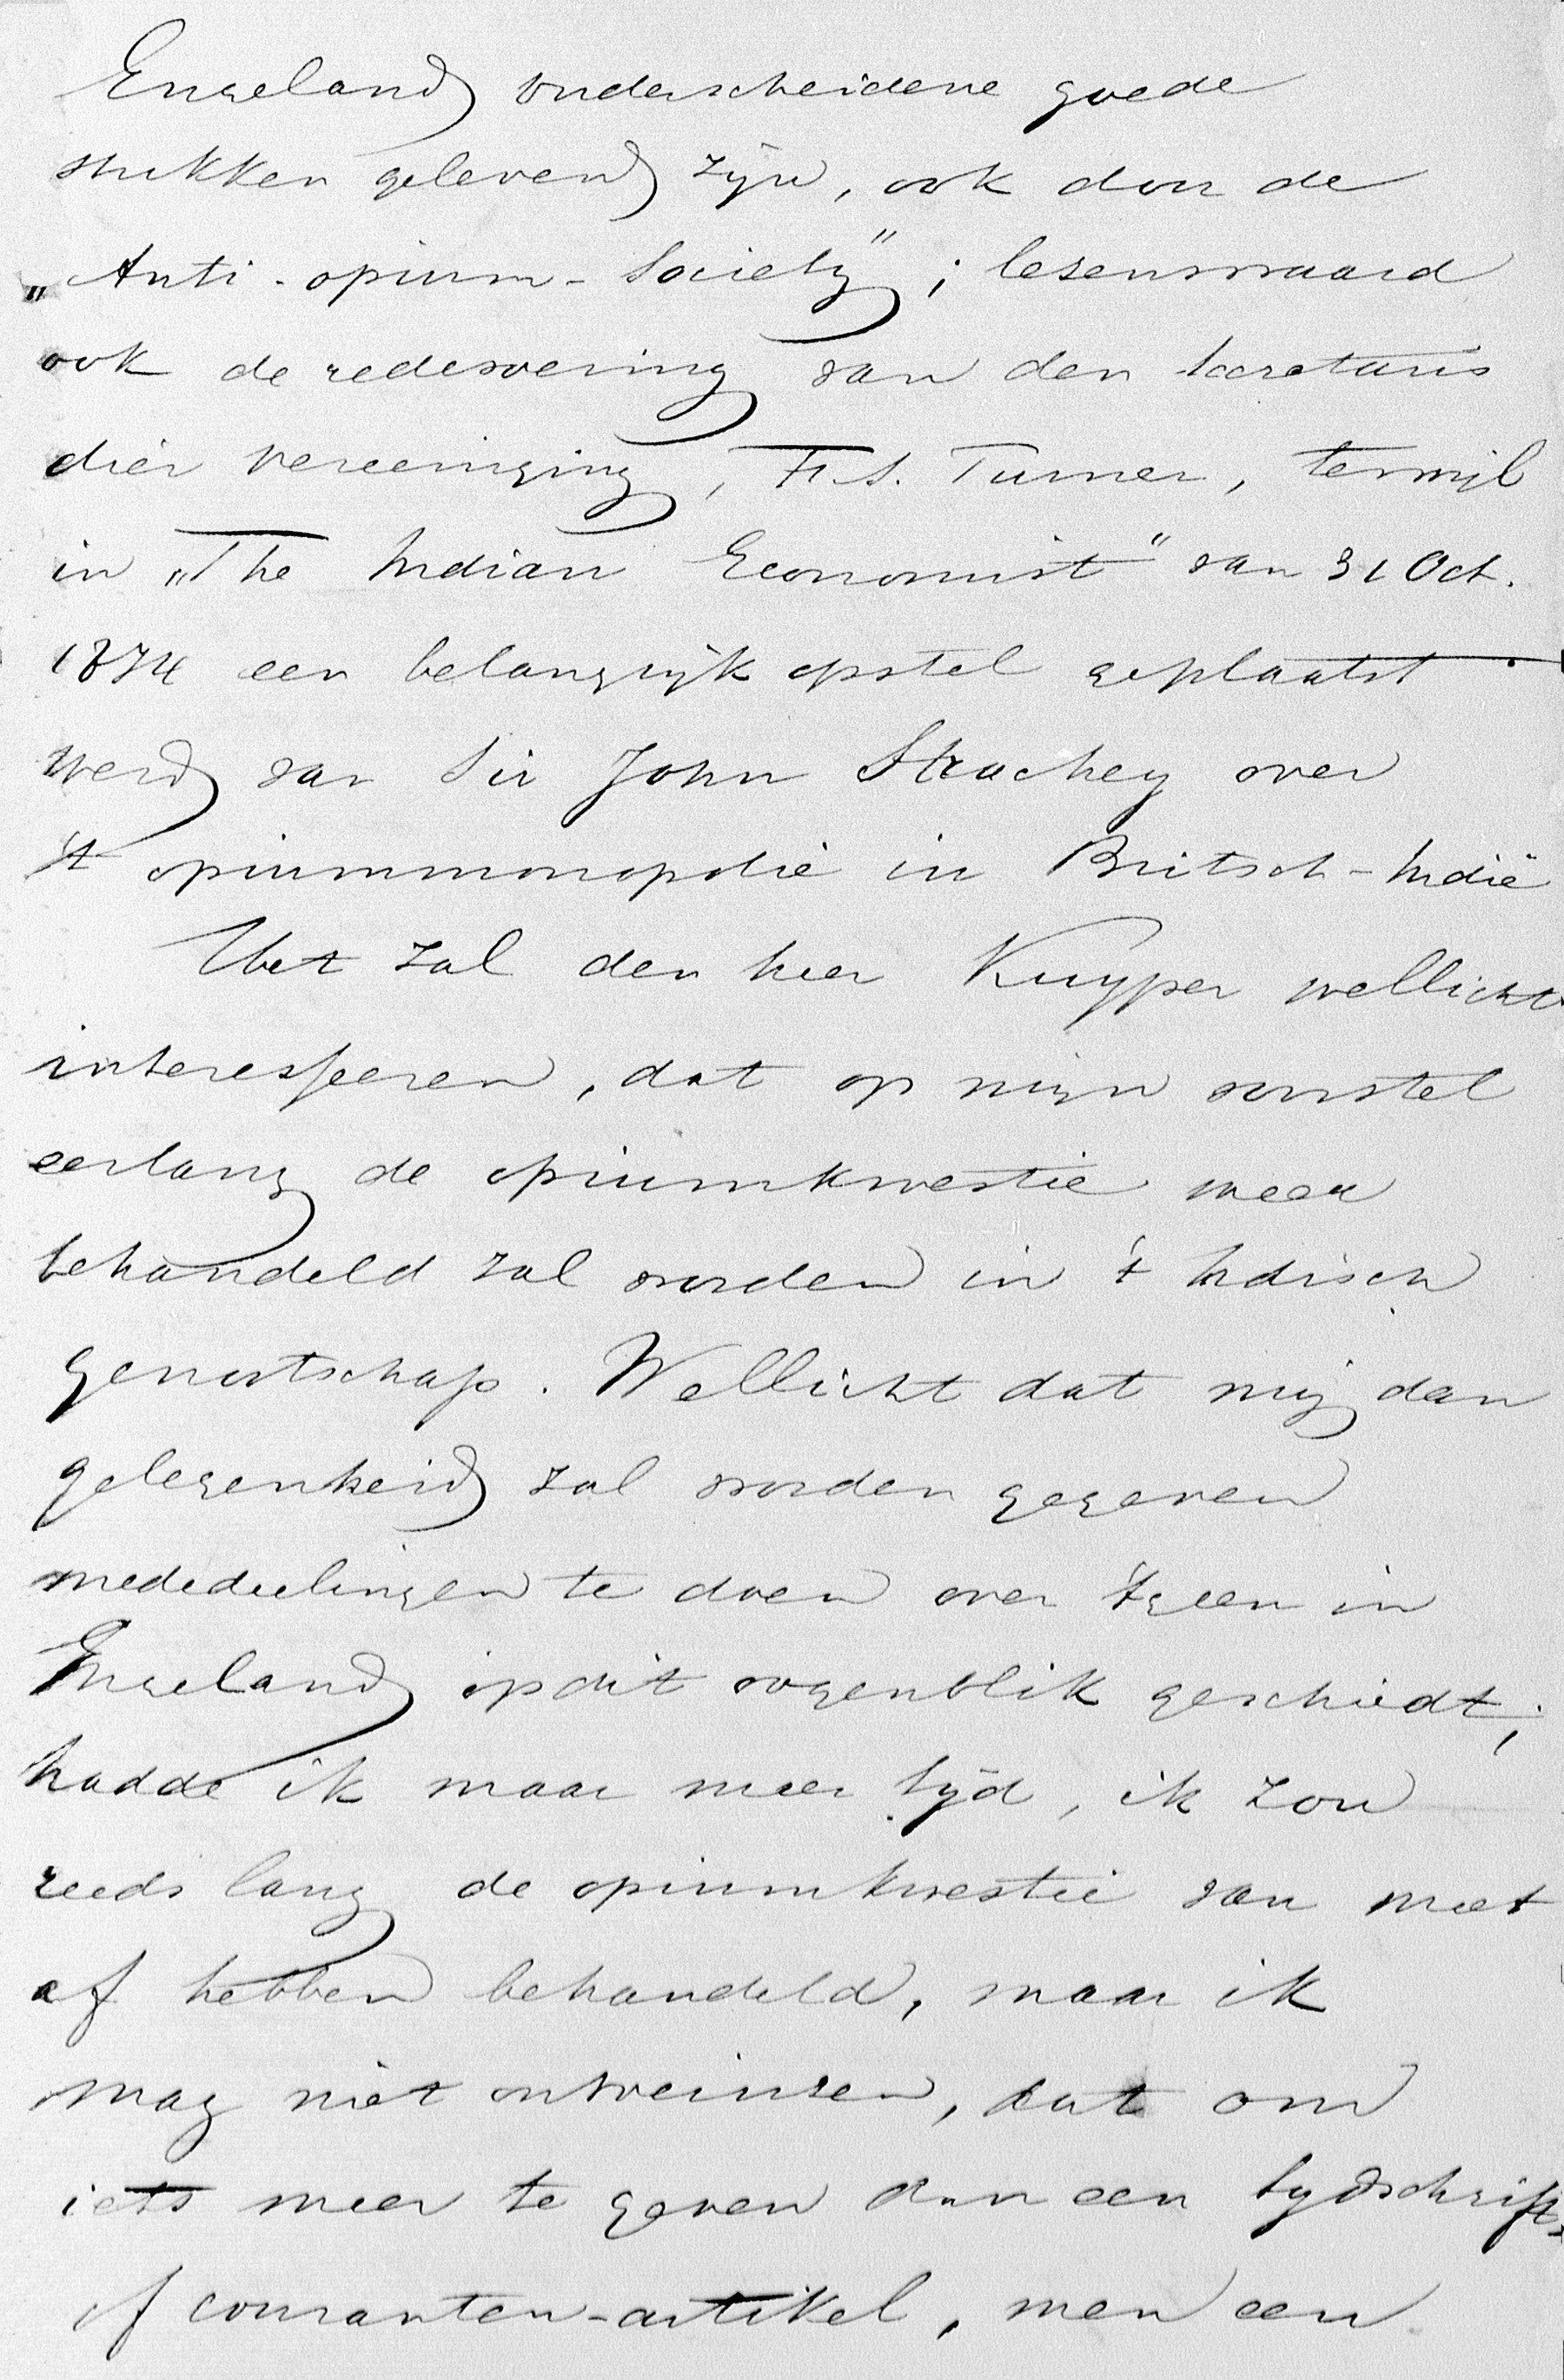 Engeland onderscheidene goede
stukken geleverd zijn, ook door de
„Anti-opium-Society"; lezenswaard
ook de redevoering van den secretaris
dier vereeniging, F. S. Turner, terwijl
in „The Indian Economist" van 31 Oct.
1874 een belangrijk opstel geplaatst
werd van Sir John Strachey over
't opiummonopolie in Britsch-Indië
Het zal den heer Kuyper wellicht
interesseeren, dat op mijn voorstel
eerlang de opiumkwestie weer
behandeld zal worden in 't Indisch
genootschap. Wellicht dat mij dan
gelegenheid zal worden gegeven
mededeelingen te doen over 'tgeen in
Engeland op dit oogenblik geschiedt;
hadde ik maar meer tijd, ik zou
reeds lang de opiumkwestie van meet
af hebben behandeld, maar ik
mag niet ontveinzen, dat om
iets meer te geven dan een tijdschrift-
of couranten-artikel, men een